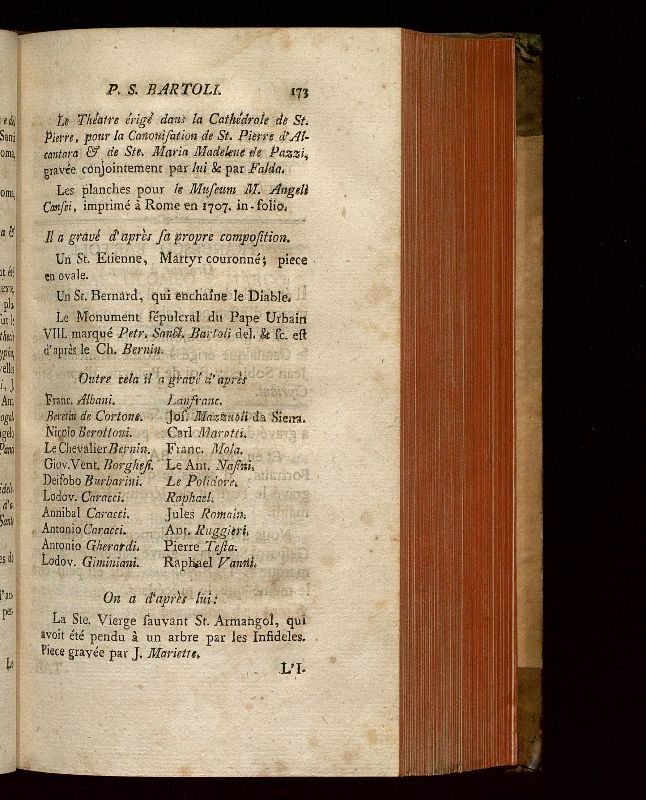 P. S. BARTOLI. 173
Le Théatre érigé dans la Cathédrale de St.
Pierre, pour la Canoniſation de St. Pierre d'Al-
cantara & de Ste. Maria Madelene de Pazzi,
gravée conjointement par lui & par Falda.
Les planches pour le Muſeum M. Angeli
Cauſei, imprimé à Rome en 1707. in-folio.
Il a gravé d'après ſa propre compoſition.
Un St. Etienne, Martyr couronné; piece
en ovale.
Un St. Bernard, qui enchaîne le Diable.
Le Monument ſépulcral du Pape Urbain
VIII. marqué Petr. Sanct. Bartoli del. & ſc. eſt
d'après le Ch. Bernin.
Outre cela il a gravé d'après
Franc. Albani. Lanfranc.
Beretin de Cortone. Joſ. Mazzuoli da Siena.
Nicolo Berottoni. Carl Maratti.
Le Chevalier Bernin. Franc. Mola.
Giov. Vent. Borgheſi. Le Ant. Naſini.
Deifobo Burbarini. Le Polidore.
Lodov. Caracci. Raphael.
Annibal Caracci. Jules Romain.
Antonio Caracci. Ant. Ruggieri.
Antonio Gherardi. Pierre Teſta.
Lodov. Giminiani. Raphael Vanni.
On a d'après lui:
La Ste. Vierge ſauvant St. Armangol, qui
avoit été pendu à un arbre par les Infideles.
Piece gravée par J. Mariette.
L'I-